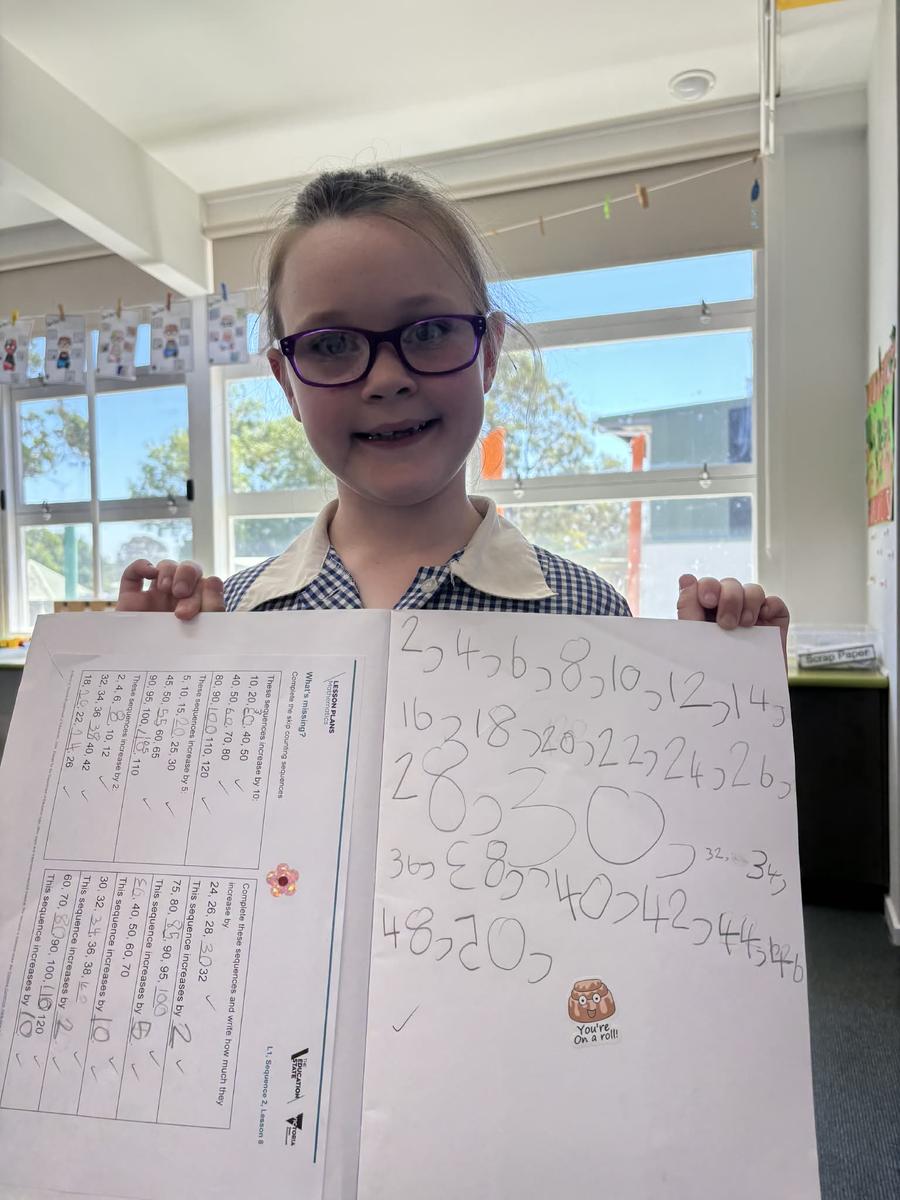 LESSON PLANS
Mathematics
What's missing?
Complete the skip counting sequences
These sequences increase by 10:
10, 20, 30, 40, 50
40, 50, 60, 70, 80
80, 90, 100 110, 120
These sequences increase by 5:
5, 10, 15, 20 25, 30
45, 50, 55 60, 65
90, 95, 100, 105, 110
These sequences increase by 2:
2, 4, 6, 8, 10, 12
32, 34, 36 38 40, 42
18, 20 22, 24, 26
Complete these sequences and write how much they
increase by
24, 26, 28, 30 32
This sequence increases by 2
75, 80, 85, 90, 95, 100
This sequence increases by 5
30, 40, 50, 60, 70
This sequence increases by 10
30, 32, 34, 36, 38, 40
This sequence increases by 2
60, 70, 80 90, 100, 110 120
This sequence increases by 10
THE
EDUCATION
STATE
VICTORIA
L1, Sequence 2, Lesson 8
2, 4, 6, 8, 10, 12, 14,
16, 18, 20, 22, 24, 26,
28, 30, 32, 34,
36, 38, 40, 42, 44, 46
48, 50,
You're
On a roll!
Scrap Paper